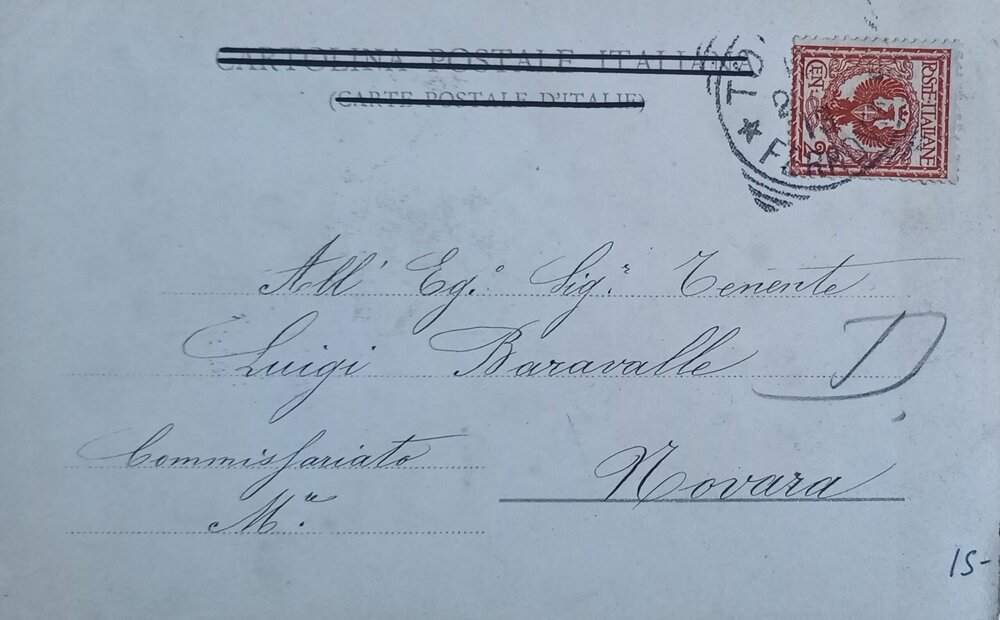 CARTOLINA POSTALE ITALIANA
(CARTE POSTALE D'ITALIE)
POSTE·ITALIANE
CEN. 2
TO
FERR
All' Eg.º Sig.r Tenente
Luigi Baravalle
D.
Commissariato
M.re
Novara
15-